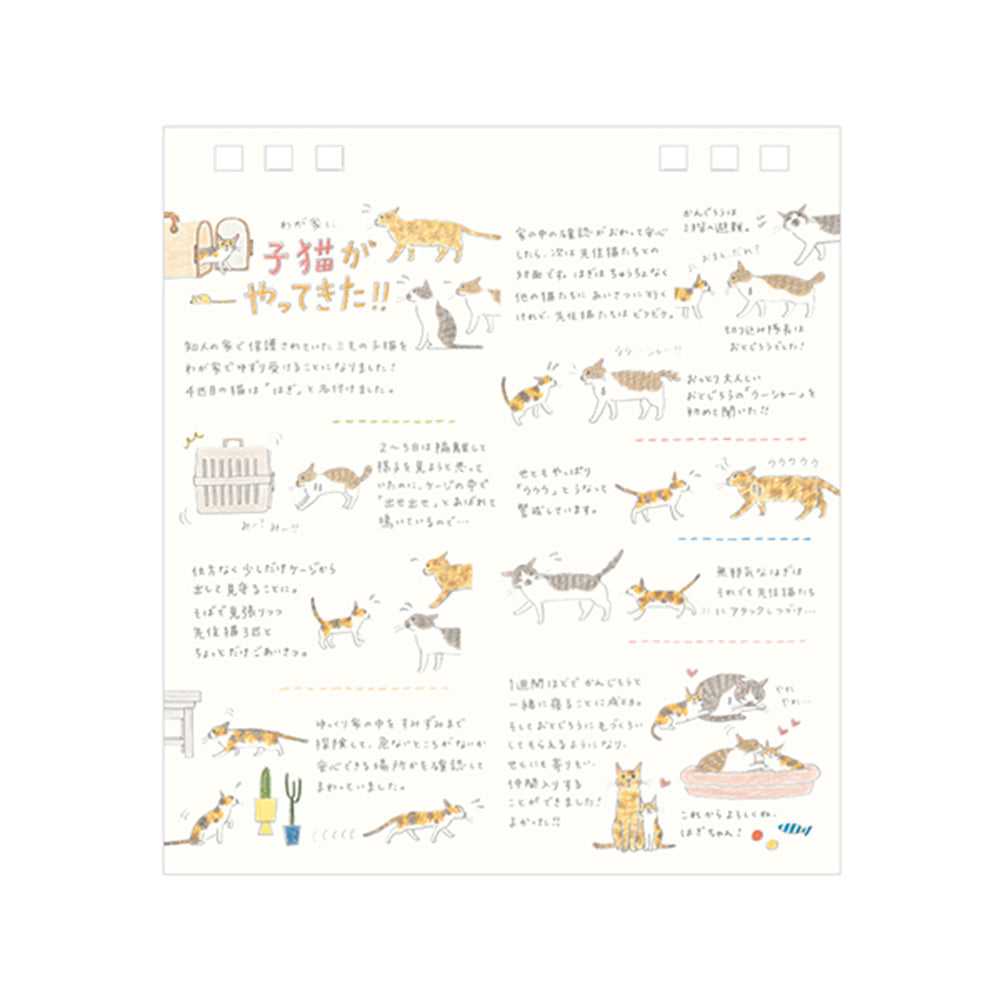 わが家に
子猫が
やってきた!!
知人の家で保護されていた三毛の子猫を
わが家でゆずり受けることになりました!
4匹目の猫は「はぎ」と名付けました。
2〜3日は隔離して
様子を見ようと思って
いたのに、ケージの中で
「出せ出せ」とあばれて
鳴いているので…
みー!みー!!
仕方なく少しだけケージから
出して見守ることに。
そばで見張りつつ
先住猫3匹と
ちょっとだけごあいさつ。
ゆっくり家の中をすみずみまで
探険して、危ないところがないか
安心できる場所かを確認して
まわっていました。
家の中の確認がおわって安心
したら、次は先住猫たちとの
対面です。はぎはちゅうちょなく
他の猫たちにあいさつに行く
けれど、先住猫たちはビクビク。
かんじろうは
2階へ避難。
おまえ、だれ?
切り込み隊長は
おとじろうでした!
ウゥーシャー!!
おっとり大人しい
おとじろうの「ウーシャー」を
初めて聞いた!!
せともやっぱり
「ウウウ」とうなって
警戒しています。
ウウウウウ
無邪気なはぎは
それでも先住猫たち
にアタックしつづけ…
1週間ほどでかんじろうと
一緒に寝ることに成功。
そしておとじろうにも毛づくろい
してもらえるようになり、
せとにも寄りそい、
仲間入りする
ことができました!
よかった!!
やれ
やれ…
これからよろしくね、
はぎちゃん!